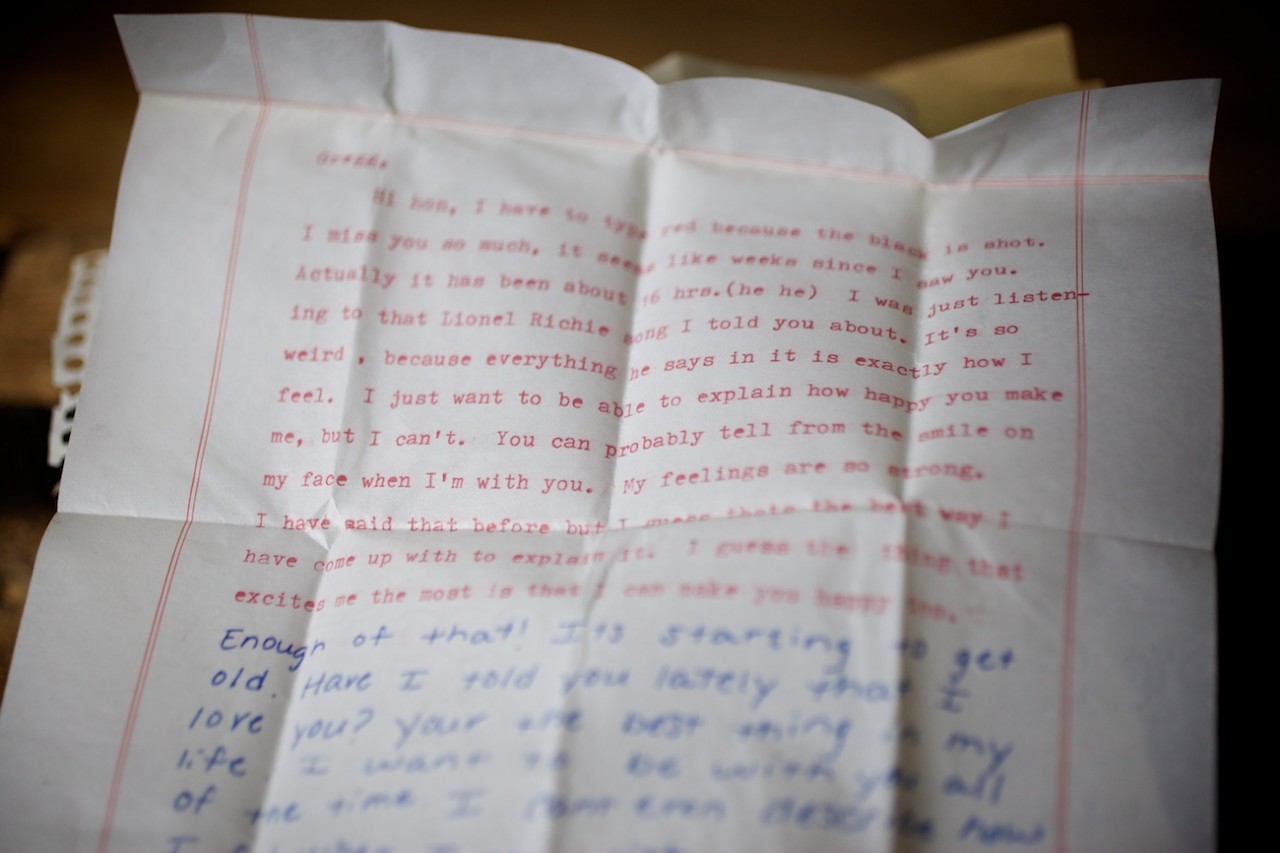 Hi hon, I have to type red because the black is shot.
I miss you so much, it seems like weeks since I saw you.
Actually it has been about 16 hrs.(he he) I was just listen-
ing to that Lionel Richie song I told you about. It's so
weird , because everything he says in it is exactly how I
feel. I just want to be able to explain how happy you make
me, but I can't. You can probably tell from the smile on
my face when I'm with you. My feelings are so strong.
I have said that before but I guess thats the best way I
have come up with to explain it. I guess the thing that
excites me the most is that I can make you happy too.
Enough of that! Its starting to get
old. Have I told you lately that I
love you? Your the best thing in my
life I want to be with you all
of the time I cant even describe how
I when I